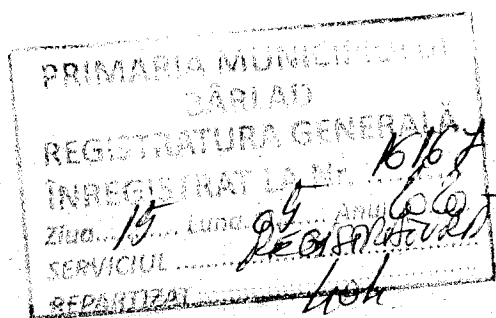 PRIMĂRIA MUNICIPIULUI
BÂRLAD
REGISTRATURA GENERALĂ
ÎNREGISTRAT LA Nr. 16167
Ziua 15 Luna 05 Anul
SERVICIUL
REPARTIZAT